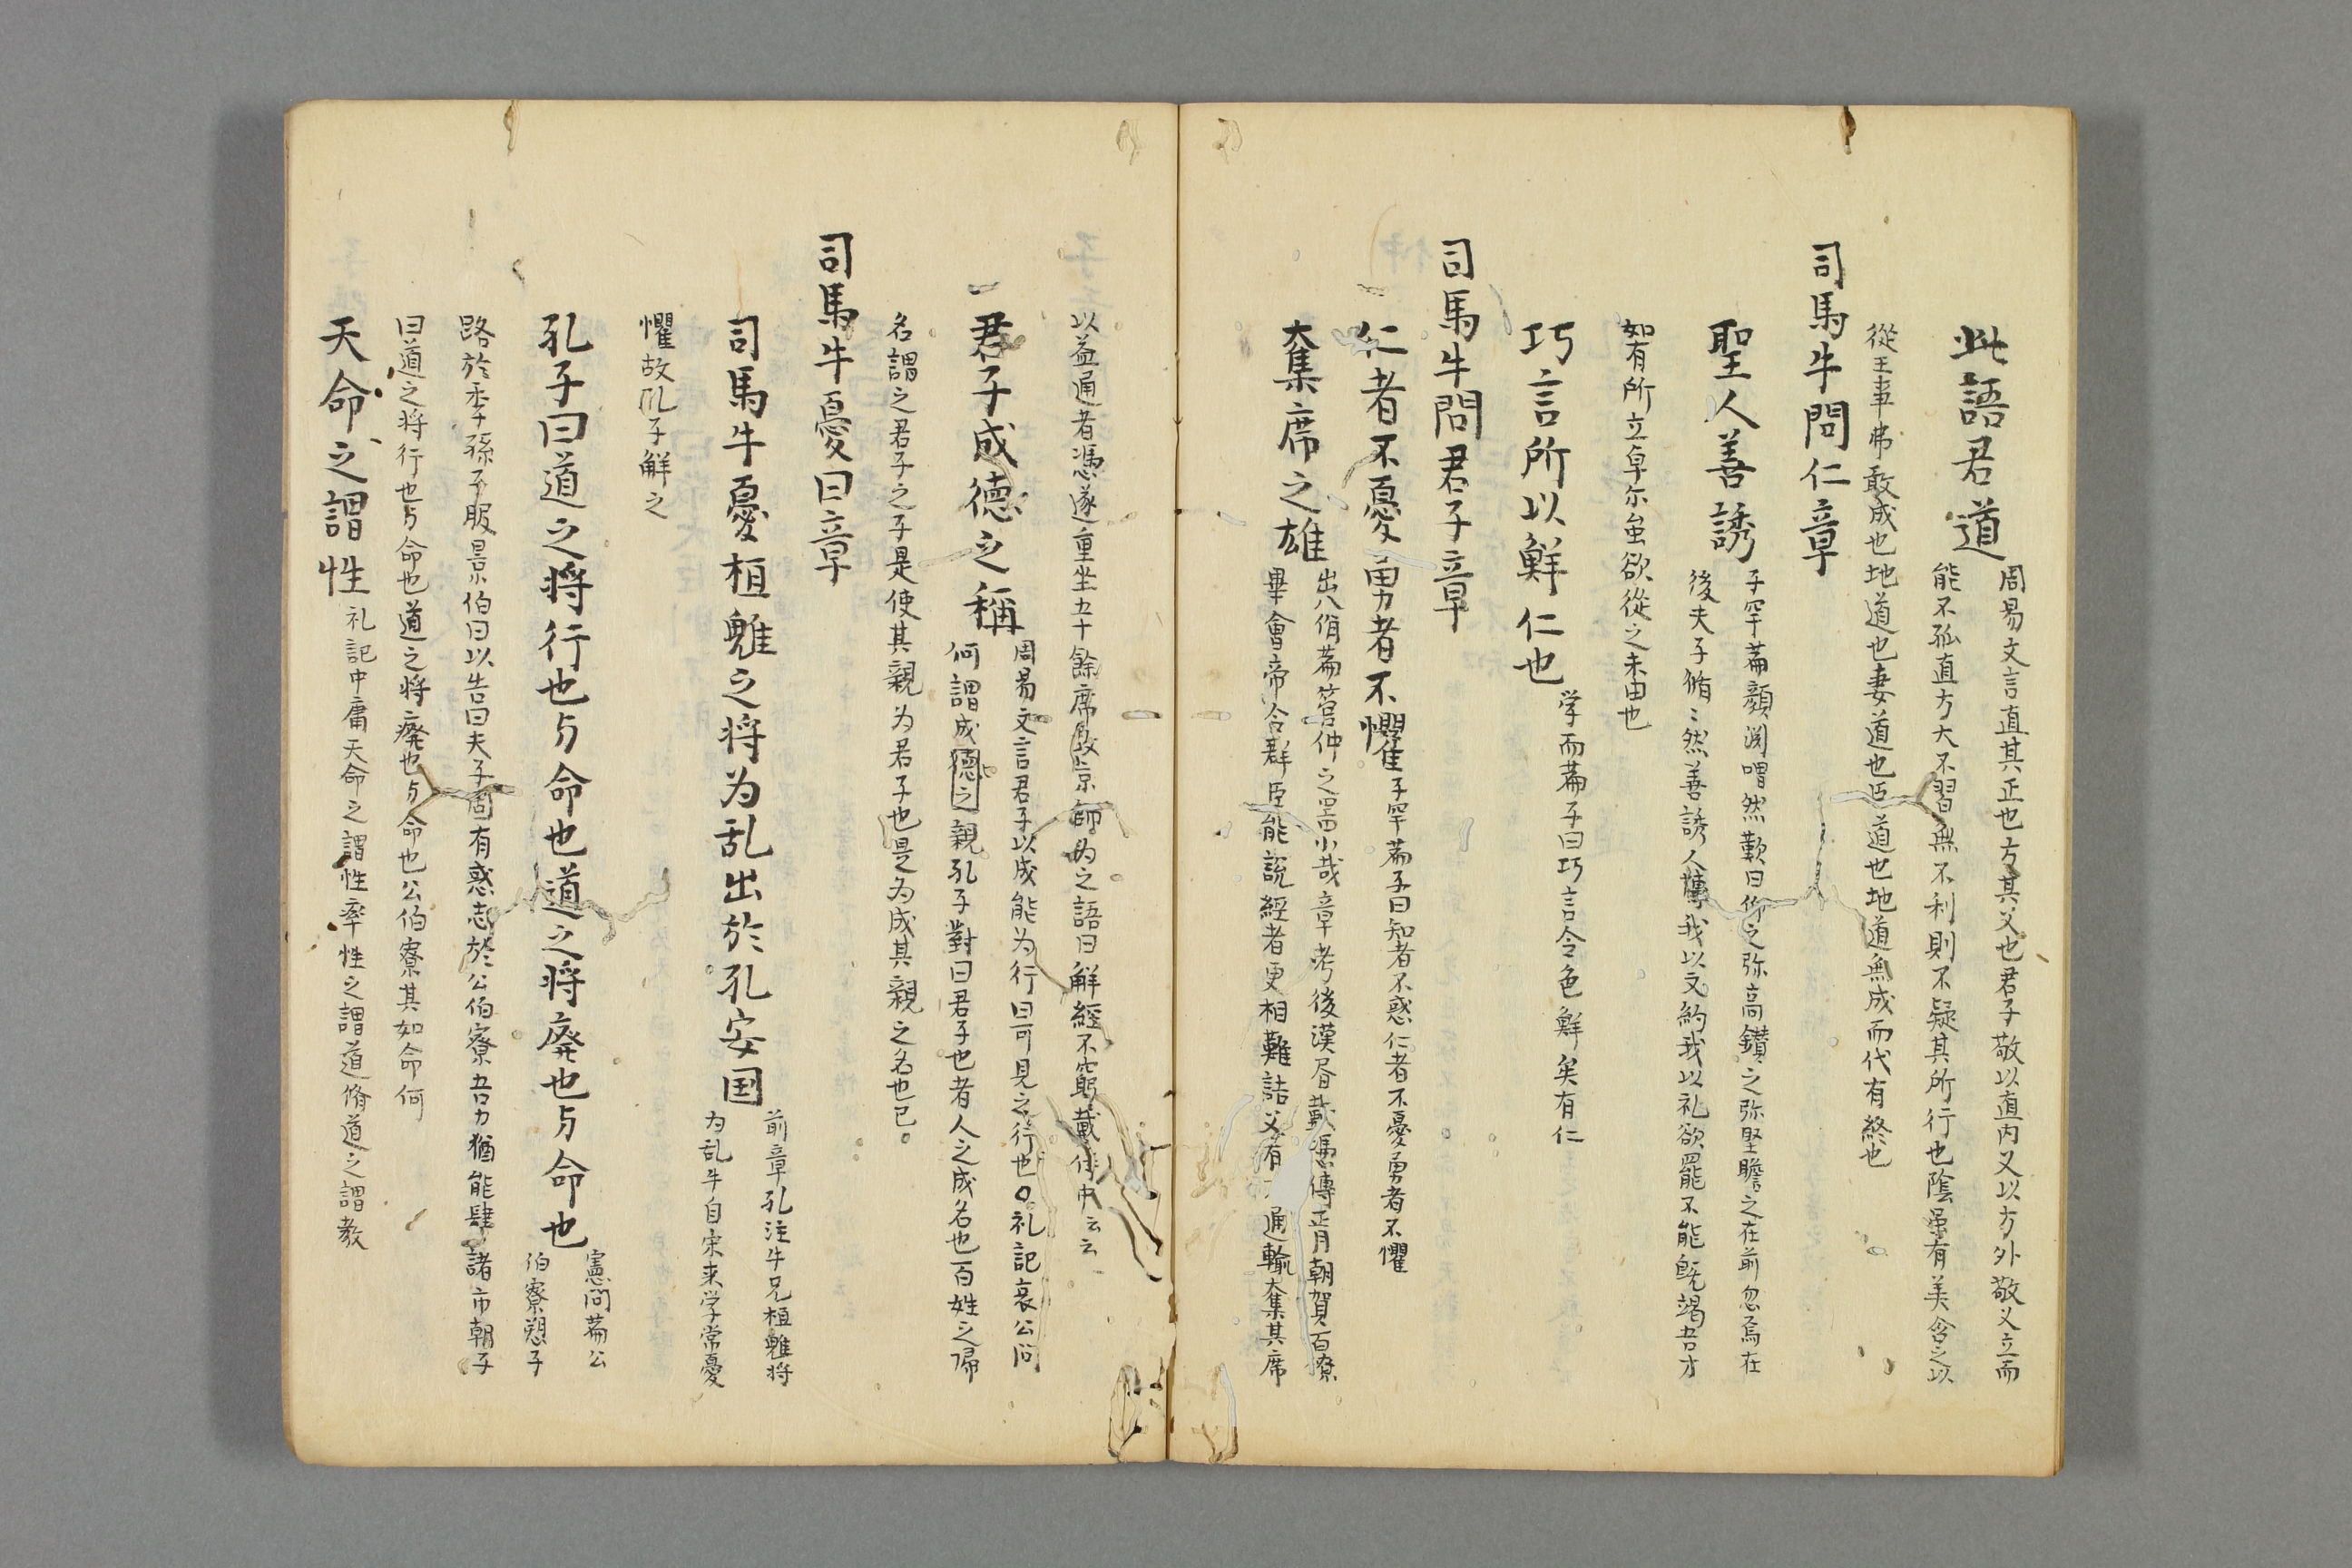 此語君道
周易文言直其正也方其义也君子敬以直内义以方外敬义立而
能不孤直方大不習無不利則不疑其所行也陰虽有美含之以
從王事弗敢成也地道也妻道也臣道也地道無成而代有終也
司馬牛問仁章
聖人善誘
子罕萹顔渕喟然歎曰仰之弥高鑚之弥堅瞻之在前忽焉在
後夫子脩〻然善誘人博我以文約我以礼欲罷不能既竭吾才
如有所立卓尓虽欲從之未由也
巧言所以鮮仁也
学而萹子曰巧言令色鮮矣有仁
司馬牛問君子章
仁者不憂勇者不懼
子罕萹子曰知者不惑仁者不憂勇者不懼
奪席之雄
出八佾萹管仲之器小哉章考後漢昏戴憑傳正月朝賀百僚
畢會帝令群臣能説經者更相難詰义有不通輙奪其席
以益通者憑遂重坐五十餘席故京師为之語曰解經不窮戴侍中云云
一君子成德之稱
周易文言君子以成能为行曰可見之行也〇礼記哀公问
何謂成德之親孔子對曰君子也者人之成名也百姓之帰
名謂之君子之子是使其親为君子也是为成其親之名也已。
司馬牛憂曰章
司馬牛憂桓魋之将为乱出於孔安国
前章孔注牛兄桓魋将
为乱牛自宋来学常憂
懼故孔子解之
孔子曰道之将行也与命也道之将廃也与命也
憲问萹公
伯寮愬子
路於季孫子服景伯曰以告曰夫子固有惑志於公伯寮吾力猶能肆諸市朝子
曰道之将行也与命也道之将廃也与命也公伯寮其如命何
天命之謂性
礼記中庸天命之謂性率性之謂道脩道之謂教